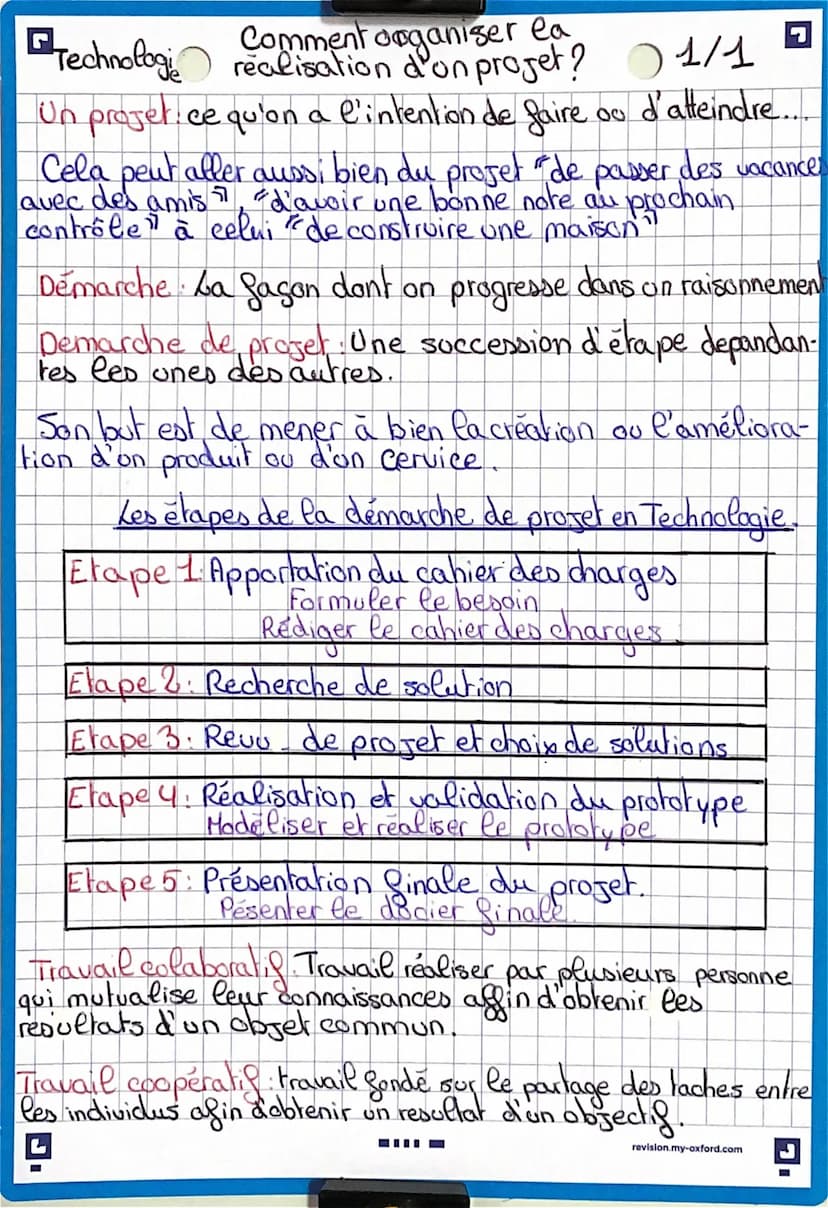 Technologie
Comment organiser la
réalisation d'on projet?
1/1
Un projet: ce qu'on a l'intention de faire ou d'atteindre...
Cela peut aller aussi bien du projet "de passer des vacances
avec des amis", "d'avoir une bonne note au prochain
contrôle" à celui "de construire une maison"
Démarche: La façon dont on progresse dans un raisonnement
Demarche de projet: Une succession d'étape depandan-
tes les unes des autres.
Son but est de mener à bien la création ou l'améliora-
tion d'on produit ou d'on cervice.
Les étapes de la démarche de projet en Technologie.
Etape 1: Apportation du cahier des charges
Formuler le besoin
Rédiger le cahier des charges.
Etape 2: Recherche de solution
Etape 3: Revu de projet et choix de solutions
Etape 4: Réalisation et validation du prototype
Modéliser et réaliser le prototype
Etape 5: Présentation finale du projet.
Pésenter le docier finale.
Travail colaboratif: Travail réaliser par plusieurs personne
qui mutualise leur connaissances affin d'obtenir les
resultats d'un objet commun.
Travail coopératif: travail fondé sur le partage des taches entre
les individus afin d'obtenir un resultat d'un objectif.
revision.my-oxford.com